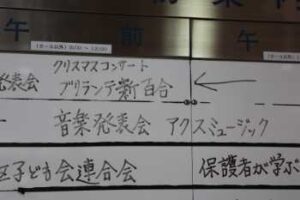 午 前 午
(ホール以外) 9:00 〜 12:00
(ホール以外)
発表会 クリスマスコンサート
ブリランテ新百合
音楽発表会 アクスミュージック
区子ども会連合会 保護者が学ぶ